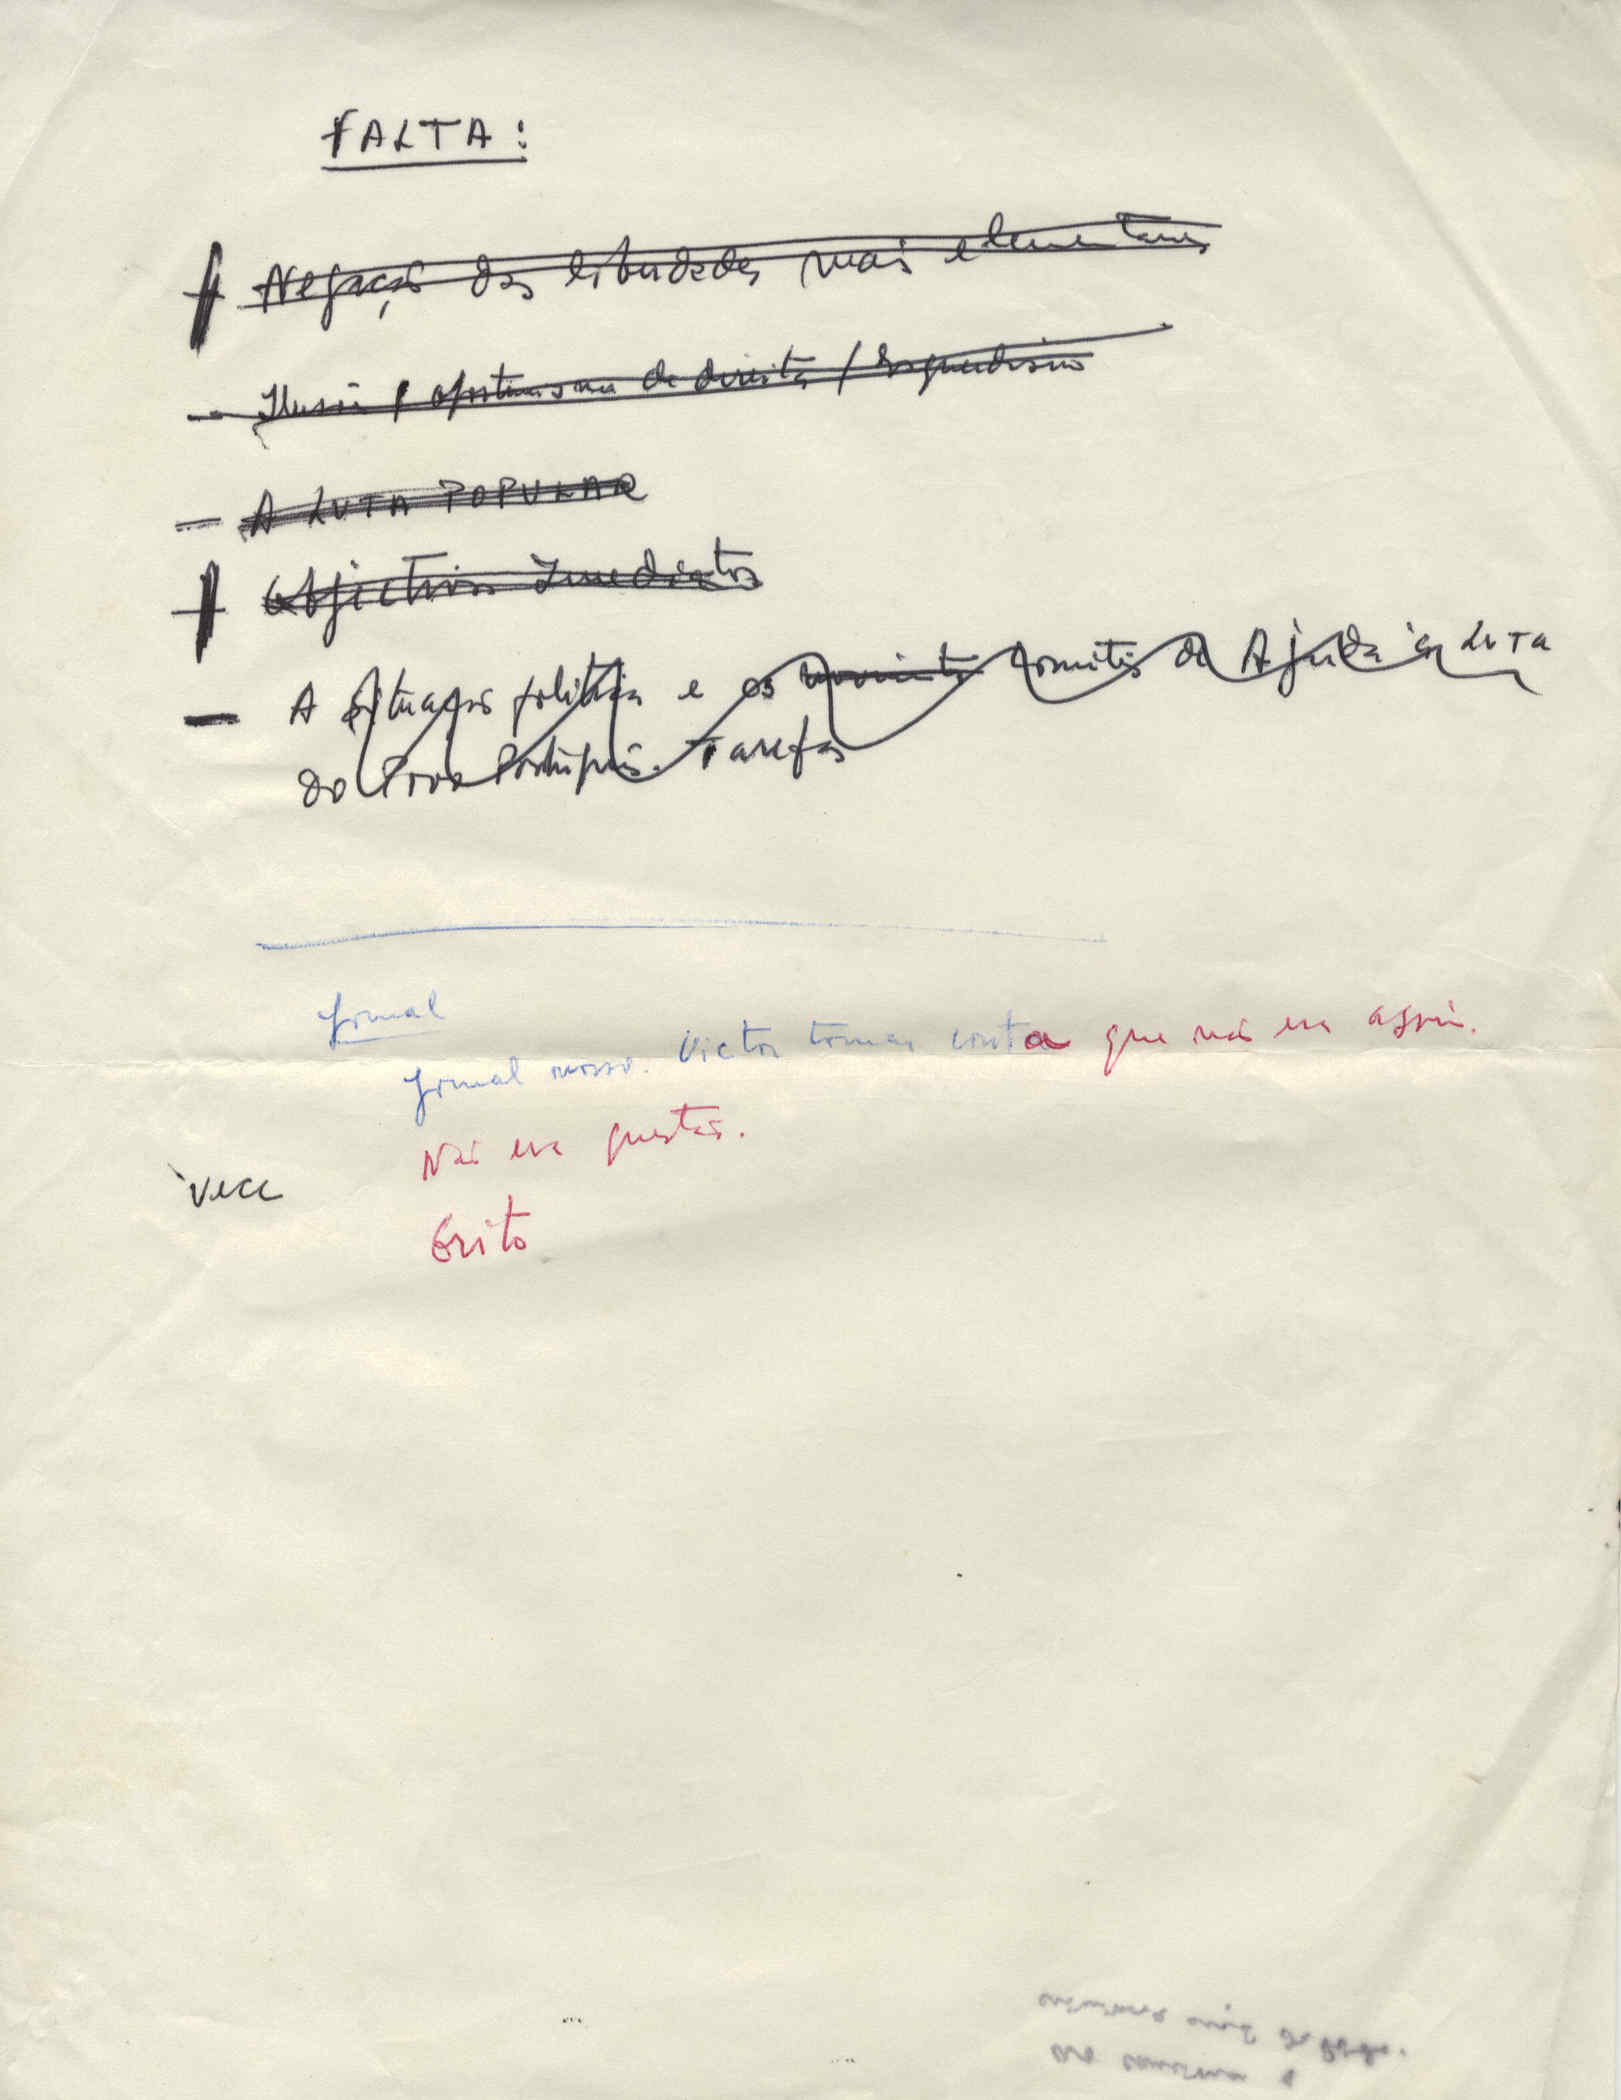 FALTA:
Negação das liberdades mais elementares
— Ilusão / oportunismo de direita / Esquerdismo
— A LUTA POPULAR
Objectivos Imediatos
— A situação politica e os comités de Ajuda à Luta
do Povo Português. Tarefas
Jornal
Jornal nosso. Victor tomar conta que não era assim.
Não era questão.
Grito